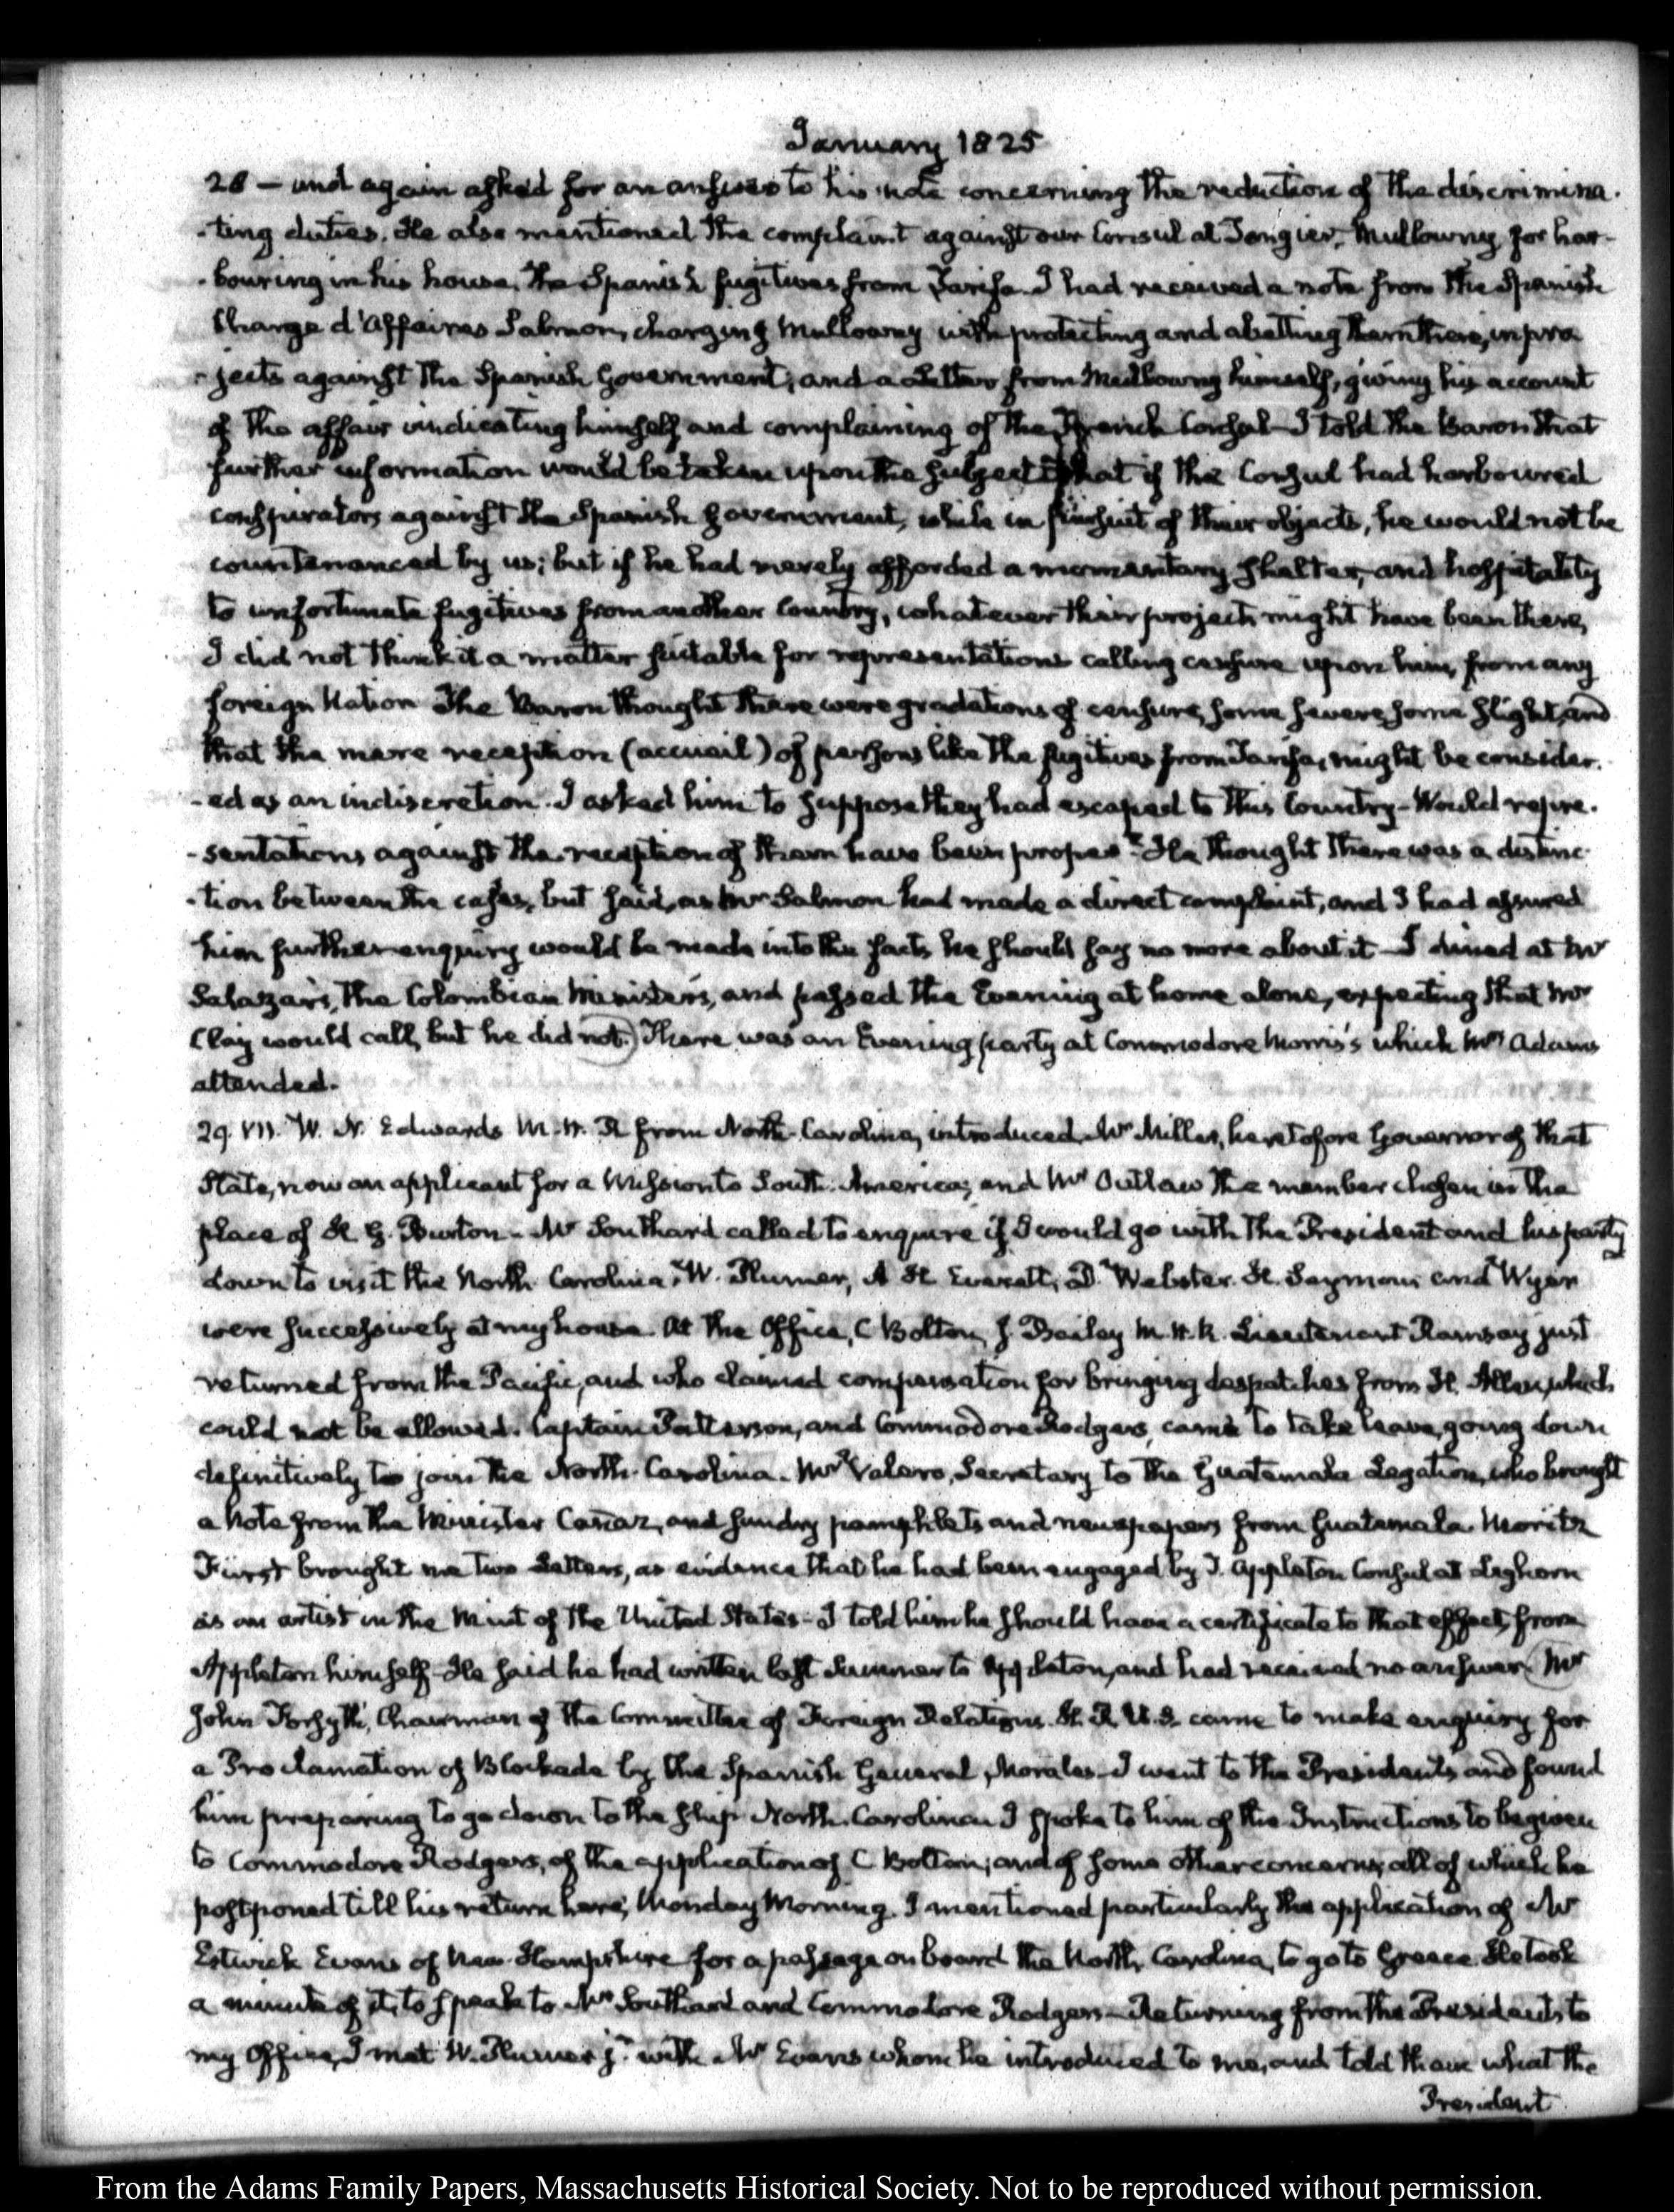 January 1825
28 — and again asked for an answer to his note concerning the reduction of the discrimina-
-ting duties. He also mentioned the complaint against our Consul at Tangier, Mullowny for har-
-bouring in his house, the Spanish fugitives from Tarifa. I had received a note from the Spanish
Chargé d'Affaires Salmon, charging Mullowny with protecting and abetting them there, in pro
-jects against the Spanish Government; and a Letter from Mullowny himself, giving his account
of the affair vindicating himself and complaining of the French Consul — I told the Baron that
further information would be taken upon the subject that if the Consul had harboured
conspirators against the Spanish government, while in pursuit of their objects, he would not be
countenanced by us; but if he had merely afforded a momentary shelter, and hospitality
to unfortunate fugitives from another Country, whatever their projects might have been there,
I did not think it a matter suitable for representations calling censure upon him, from any
foreign Nation The Baron thought there were gradations of censure, some severe, some slight, and
that the mere reception (accueil) of persons like the fugitives from Tarifa, might be consider-
-ed as an indiscretion. I asked him to suppose they had escaped to this Country — Would repre-
-sentations against the reception of them have been proper? He thought there was a distinc-
-tion between the cases, but said, as Mr Salmon had made a direct complaint, and I had assured
him further enquiry would be made into the facts he should say no more about it — I dined at Mr
Salazar's, the Colombian Minister's, and passed the Evening at home alone, expecting that Mr
Clay would call, but he did not.) There was an Evening party at Commodore Morris's which Mrs Adams
attended.
29. VII. W. N. Edwards M. H. R from North-Carolina, introduced Mr Miller, heretofore Governor of that
State, now an applicant for a Mission to South-America; and Mr Outlaw the member chosen in the
place of H. G. Burton — Mr Southard called to enquire if I would go with the President and his party
down to visit the North Carolina. W. Plumer, A H. Everett, D. Webster. H. Seymour, and Wyer
were successively at my house. At the Office, C Bolton, J. Bailey M. H. R. Lieutenant Ramsay just
returned from the Pacific, and who claimed compensation for bringing despatches from H. Allen, which
could not be allowed. Captain Patterson, and Commodore Rodgers, came to take leave, going down
definitively to join the North-Carolina. Mr Valero, Secretary to the Guatemala Legation, who brought
a Note from the Minister Cañaz, and sundry pamphlets and newspapers from Guatemala. Moritz
Fürst brought me two Letters, as evidence that he had been engaged by T. Appleton Consul at Leghorn
as an artist in the Mint of the United States — I told him he should have a certificate to that effect, from
Appleton himself — He said he had written last Summer to Appleton, and had received no answer. (Mr
John Forsyth, Chairman of the Committee of Foreign Relations. H. R. U.S. came to make enquiry for
a Proclamation of Blockade by the Spanish General, Morales — I went to the President's and found
him preparing to go down to the ship North-Carolina. I spoke to him of the Instructions to be given
to Commodore Rodgers, of the application of C Bolton; and of some other concerns, all of which he
postponed till his return here, Monday Morning. I mentioned particularly the application of Mr
Estwick Evans of New-Hampshire for a passage on board the North Carolina, to go to Greece. He took
a minute of it, to speak to Mr Southard and Commodore Rodgers — Returning from the President's to
my Office, I met W. Plumer jr. with Mr Evans whom he introduced to me, and told them what the
President
From the Adams Family Papers, Massachusetts Historical Society. Not to be reproduced without permission.